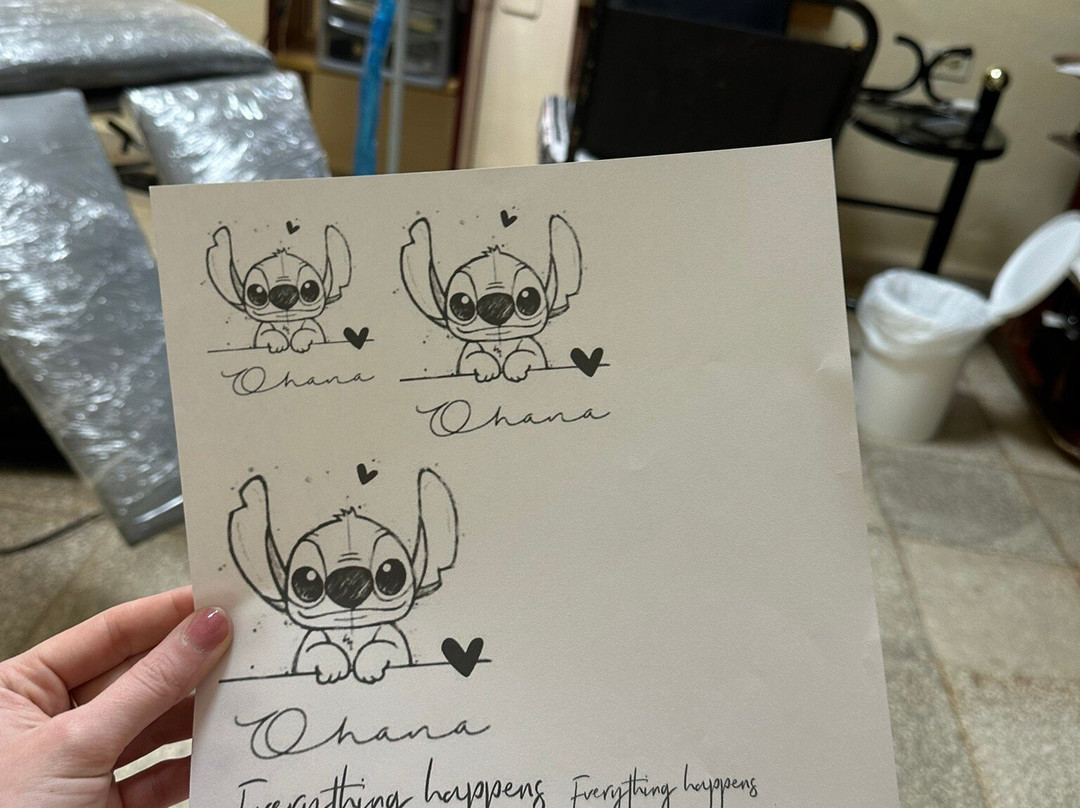 Ohana
Ohana
Ohana
Everything happens
Everything happens